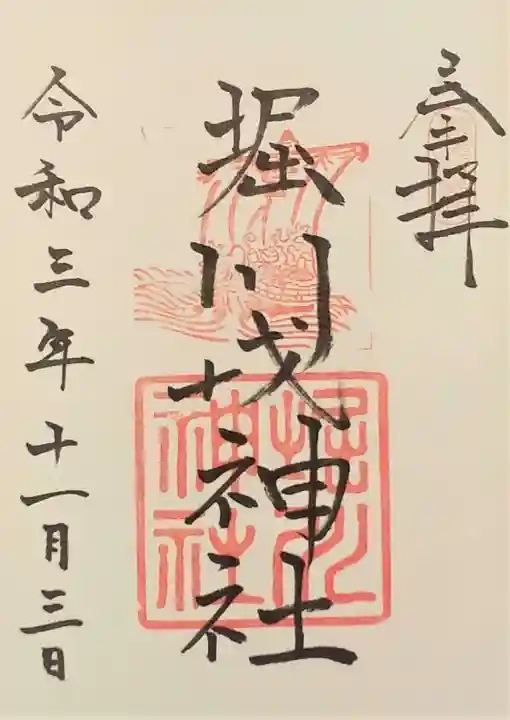 奉拝
堀川戎神社
堀川
神社
令和三年十一月三日